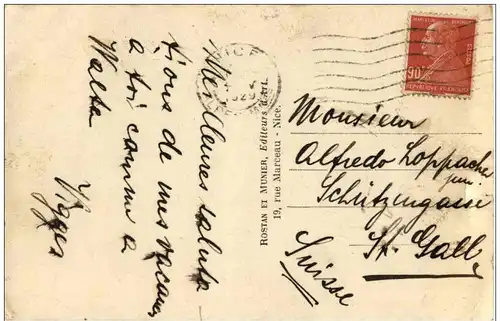 Meilleures saluta
tions de mes vacances
a toi comme a
Walta
Vigges
ROSTAN ET MUNIER, Editeurs d'Art.
19, rue Marceau - Nice.
NICE
90c
REPUBLIQUE FRANÇAISE
Monsieur
Alfredo Loppacher
jun.
Schützengasse
St. Gall
Suisse